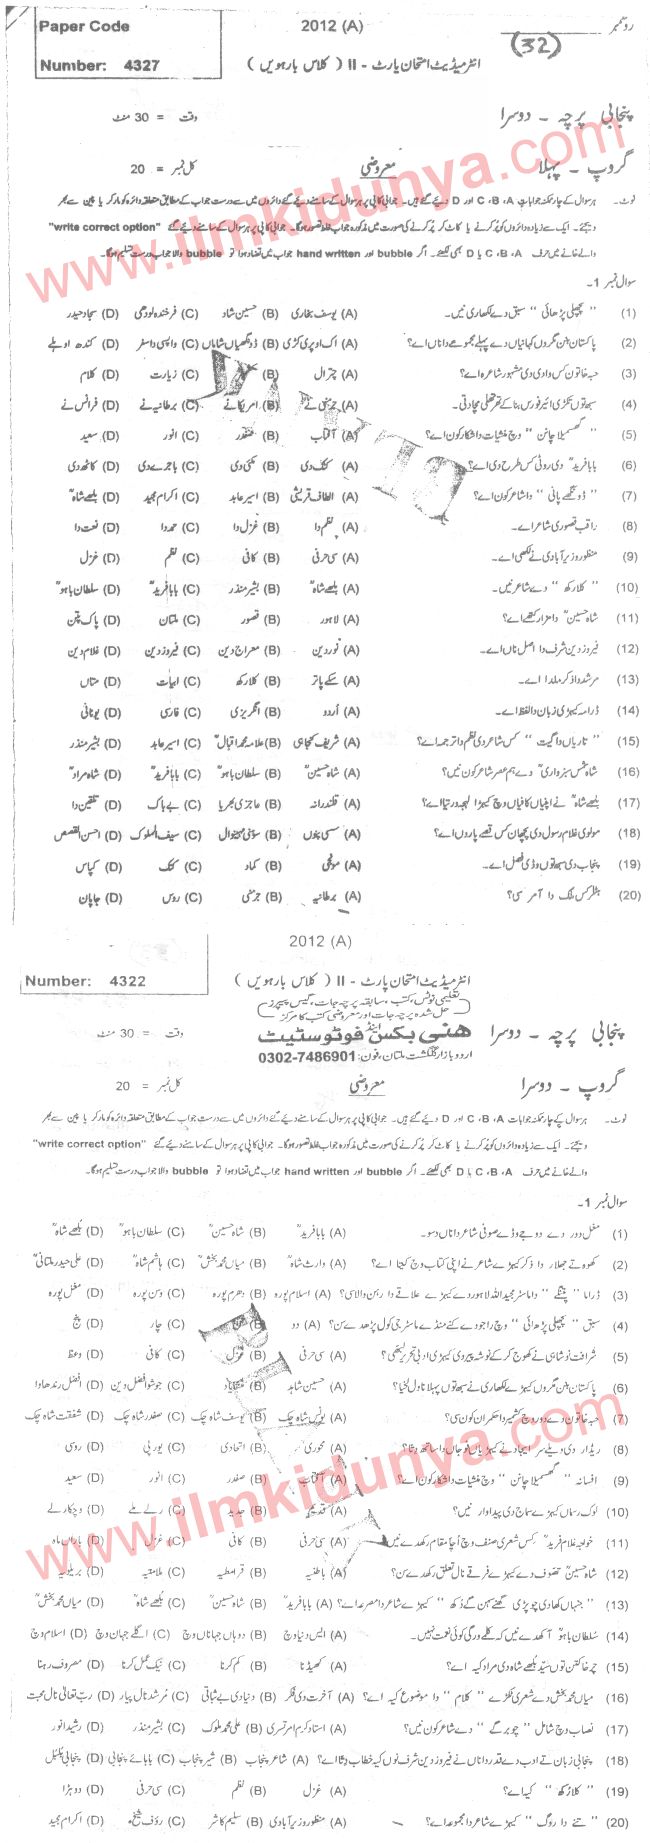 Paper Code 2012 (A) رول نمبر
(32)
Number: 4327 انٹرمیڈیٹ امتحان پارٹ - II ( کلاس بارہویں )
پنجابی پرچہ - دوسرا وقت = 30 منٹ
گروپ - پہلا معروضی کل نمبر = 20
www.ilmkidunya.com
نوٹ - ہر سوال کے چار ممکنہ جوابات A ، B ، C اور D دیئے گئے ہیں۔ جوابی کاپی پر ہر سوال کے سامنے دیئے گئے دائروں میں سے درست جواب کے مطابق متعلقہ دائرہ کو مارکر یا پین سے بھر
دیجئے۔ ایک سے زیادہ دائروں کو پُر کرنے یا کاٹ کر پُر کرنے کی صورت میں مذکورہ جواب غلط تصور ہوگا۔ جوابی کاپی پر ہر سوال کے سامنے دیئے گئے "write correct option"
والے خانے میں حرف A ، B ، C یا D بھی لکھئے۔ اگر bubble اور hand written جواب میں تضاد ہوا تو bubble والا جواب درست تسلیم ہوگا۔
سوال نمبر 1۔
(1) " پچھلی پڑھائی " سبق دے لکھاری نیں۔ (A) یوسف بخاری (B) حسین شاد (C) فرخندہ لودھی (D) سجاد حیدر
(2) پاکستان بنن مگروں کہانیاں دے پہلے مجموعے دا ناں اے؟ (A) اک اوپری کڑی (B) ڈونگھیاں شاماں (C) واپسی دا سفر (D) کندھ اوہلے
(3) حبہ خاتون کس وادی دی مشہور شاعرہ اے؟ (A) چترال (B) (C) زیارت (D) کلام
(4) سبھ توں تکڑی ائیر فورس بنا کے تھرتھلی مچا دتی۔ (A) جرمنی نے (B) امریکا نے (C) برطانیہ نے (D) فرانس نے
(5) " گھسمیلا چانن " وچ منشیات دا شکار کون اے؟ (A) آفتاب (B) صفدر (C) انور (D) سعید
(6) بابا فریدؒ دی روٹی کس طرح دی اے؟ (A) کنک دی (B) مکئی دی (C) باجرے دی (D) کاٹھ دی
(7) " ڈونگھے پانی " دا شاعر کون اے؟ (A) الطاف قریشی (B) اسیر عابد (C) اکرام مجید (D) بلھے شاہؒ
(8) راقب قصوری شاعر اے۔ (A) نظم دا (B) غزل دا (C) حمد دا (D) نعت دا
(9) منظور وزیر آبادی نے لکھی اے۔ (A) سی حرفی (B) کافی (C) نظم (D) غزل
(10) " کلا رکھ " دے شاعر نیں۔ (A) بلھے شاہؒ (B) بشیر منذر (C) بابا فریدؒ (D) سلطان باہوؒ
(11) شاہ حسینؒ دا مزار کتھے اے؟ (A) لاہور (B) قصور (C) ملتان (D) پاک پتن
(12) فیروز دین شرف دا اصل ناں اے۔ (A) نور دین (B) معراج دین (C) فیروز دین (D) غلام دین
(13) مرشد دا ذکر ملدا اے۔ (A) سکے پاتر (B) کلا رکھ (C) ابیات (D) متاں
(14) ڈرامہ کیہڑی زبان دا لفظ اے۔ (A) اُردو (B) انگریزی (C) فارسی (D) یونانی
(15) " تاریاں دا گیت " کس شاعر دی نظم دا ترجمہ اے؟ (A) شریف کنجاہی (B) علامہ محمد اقبالؒ (C) اسیر عابد (D) بشیر منذر
(16) شاہ شمس سبزواریؒ دے ہم عصر شاعر کون نیں؟ (A) شاہ حسینؒ (B) سلطان باہوؒ (C) بابا فریدؒ (D) شاہ مرادؒ
(17) بلھے شاہؒ نے اپنیاں کافیاں وچ کیہڑا لہجہ ورتیا اے؟ (A) قلندرانہ (B) عاجزی بھریا (C) بے باک (D) تلقین دا
(18) مولوی غلام رسول دی پچھان کس قصے پاروں اے؟ (A) سسی پنوں (B) سوہنی مہینوال (C) سیف الملوک (D) احسن القصص
(19) پنجاب دی سبھ توں وڈی فصل اے۔ (A) مونجی (B) کماد (C) کنک (D) کپاس
(20) ہٹلر کس ملک دا آمر سی؟ (A) برطانیہ (B) جرمنی (C) روس (D) جاپان
2012 (A)
Number: 4322 انٹرمیڈیٹ امتحان پارٹ - II ( کلاس بارہویں )
تعلیمی نوٹس، کتب، سابقہ پرچہ جات، گیس پیپرز
حل شدہ پرچہ جات اور معروضی کتب کا مرکز
پنجابی پرچہ - دوسرا ھنی بکس اینڈ فوٹوسٹیٹ وقت = 30 منٹ
اردو بازار گلگشت ملتان، فون: 0302-7486901
گروپ - دوسرا معروضی کل نمبر = 20
نوٹ - ہر سوال کے چار ممکنہ جوابات A ، B ، C اور D دیئے گئے ہیں۔ جوابی کاپی پر ہر سوال کے سامنے دیئے گئے دائروں میں سے درست جواب کے مطابق متعلقہ دائرہ کو مارکر یا پین سے بھر
دیجئے۔ ایک سے زیادہ دائروں کو پُر کرنے یا کاٹ کر پُر کرنے کی صورت میں مذکورہ جواب غلط تصور ہوگا۔ جوابی کاپی پر ہر سوال کے سامنے دیئے گئے "write correct option"
والے خانے میں حرف A ، B ، C یا D بھی لکھئے۔ اگر bubble اور hand written جواب میں تضاد ہوا تو bubble والا جواب درست تسلیم ہوگا۔
سوال نمبر 1۔
(1) مغل دور دے دو جے وڈے صوفی شاعر دا ناں دسو۔ (A) بابا فریدؒ (B) شاہ حسینؒ (C) سلطان باہوؒ (D) بلھے شاہؒ
(2) کھوہ تے جھلار دا ذکر کیہڑے شاعر نے اپنی کتاب وچ کیتا اے؟ (A) وارث شاہؒ (B) میاں محمد بخشؒ (C) ہاشم شاہؒ (D) علی حیدر ملتانیؒ
(3) ڈراما " پتنگے " دا ماسٹر مجید اللہ لاہور دے کیہڑے علاقے دا رہن والا سی؟ (A) اسلام پورہ (B) دھرم پورہ (C) وسن پورہ (D) مغل پورہ
(4) سبق " پچھلی پڑھائی " وچ راجو دے کنے منڈے ماسٹر جی کول پڑھدے سن؟ (A) دو (B) (C) چار (D) پنج
(5) شرافت نوشاہی نے کھوج کر کے نوشہ پیر دی کیہڑی ادبی تحریر لبھی؟ (A) سی حرفی (B) غزل (C) کافی (D) وعظ
(6) پاکستان بنن مگروں کیہڑے لکھاری نے سبھ توں پہلا ناول لکھیا؟ (A) حسین شاہد (B) (C) جوشوا فضل دین (D) افضل رندھاوا
(7) حبہ خاتون دے دور وچ کشمیر دا حکمران کون سی؟ (A) یونس شاہ چک (B) یوسف شاہ چک (C) صفدر شاہ چک (D) شفقت شاہ چک
(8) ریڈار دی ویلے سر ایجاد نے کیہڑیاں فوجاں دا ساتھ دتا؟ (A) محوری (B) اتحادی (C) یورپی (D) روسی
(9) افسانہ " گھسمیلا چانن " وچ منشیات دا شکار کون اے؟ (A) آفتاب (B) صفدر (C) انور (D) سعید
(10) لوک رسماں کیہڑے سماج دی پیداوار نیں؟ (A) قدیم (B) جدید (C) رلے ملے (D) وچکارلے
(11) خواجہ غلام فریدؒ کس شعری صنف وچ اُچا مقام رکھدے نیں؟ (A) سی حرفی (B) کافی (C) غزل (D) باراں ماہ
(12) شاہ حسینؒ تصوف دے کیہڑے فرقے نال تعلق رکھدے سن؟ (A) باطنیہ (B) قرامطیہ (C) ملامتیہ (D) بریلویہ
(13) " جنہاں کھادی چوپڑی گھنے سہن گے دُکھ " کیہڑے شاعر دا مصرعہ اے؟ (A) بابا فریدؒ (B) شاہ حسینؒ (C) بلھے شاہؒ (D) میاں محمد بخشؒ
(14) سلطان باہوؒ آکھدے نیں کہ کلمے ورگی کوئی نعمت نہیں۔ (A) ایس دنیا وچ (B) دوہاں جہاناں وچ (C) اگلے جہان وچ (D) اسلام وچ
(15) چرخا کتن توں سیّد بلھے شاہ دی مراد کیہ اے؟ (A) کھیڈنا (B) کم کرنا (C) نیک عمل کرنا (D) مصروف رہنا
(16) میاں محمد بخش دے شعری ٹکڑے " کلام " دا موضوع کیہ اے؟ (A) آخرت دی فکر (B) دنیا دی بے ثباتی (C) مُرشد نال پیار (D) ربّ تعالیٰ نال محبت
(17) نصاب وچ شامل " چوبرگے " دے شاعر کون نیں؟ (A) استاد کرم امرتسری (B) علی محمد ملوک (C) بشیر منذر (D) رشید انور
(18) پنجابی زبان تے ادب دے قدر داناں نے فیروز دین شرف نوں کیہ خطاب دتا اے؟ (A) شاعر پنجاب (B) شیر پنجاب (C) بابائے پنجابی (D) پنجابی بلبل
(19) " کلا رکھ " کیہ اے؟ (A) غزل (B) نظم (C) سی حرفی (D) دوہڑا
(20) " تنے دا روگ " کیہڑے شاعر دا مجموعہ اے؟ (A) منظور وزیر آبادی (B) سلیم کاشر (C) رؤف شیخ (D) اکرام مجید
www.ilmkidunya.com